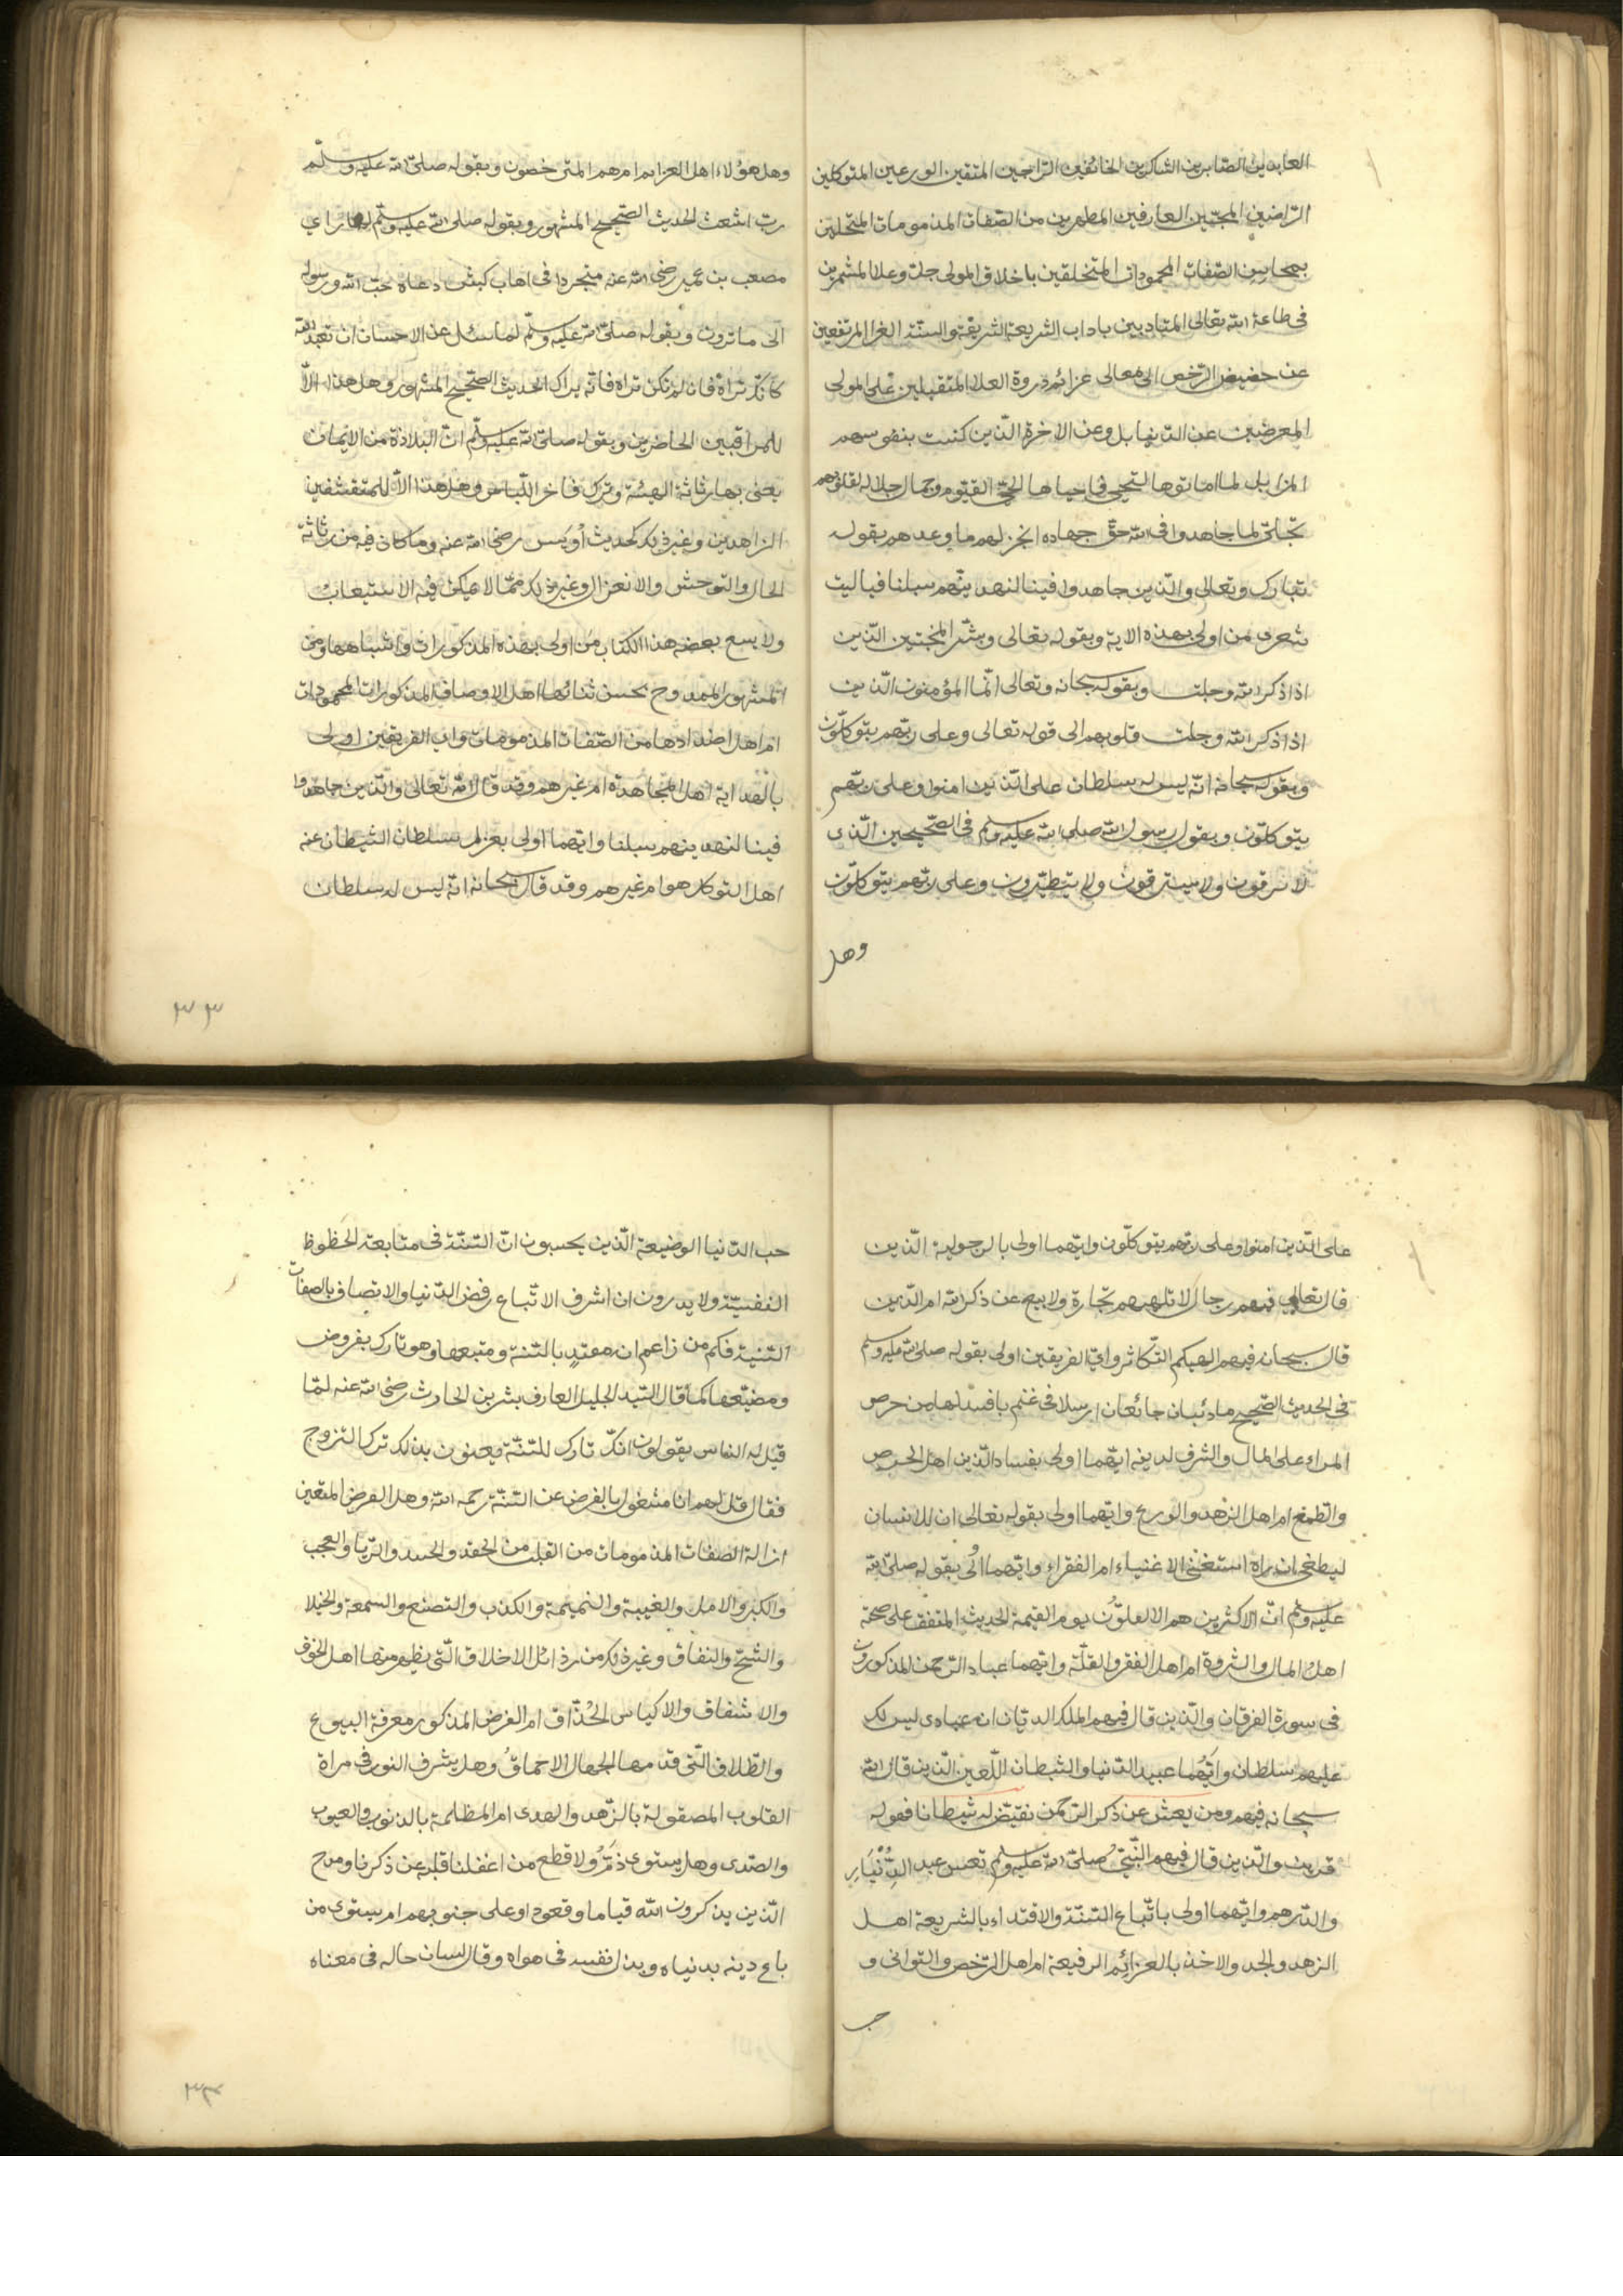 العابدين الصابرين الشاكرين الخائفين الراجين المتقين الورعين المتوكلين
الراضين المحبّين العارفين المطهرين من الصّفات المذمومات المتحلين
بمحاسن الصّفات المحمودات المتخلقين باخلاق المولى جلت وعلا المشمرين
فى طاعة الله تعالى المتادبين باداب الشريعة الشريفة والسنّة الغرا المرتفعين
عن حضيض الرّخص الى معالى عزائم ذروة العلا المتقبلين على المولى
المعرضين عن الدنيا بل وعن الاخرة الّذين كنست بنفوسهم
المزابل لما اماتوها لتحيى فاحياها الحىّ القيّوم وجمال جلاله لقلوبهم
تجلّى لما جاهدوا فى الله حق جهاده انجز لهم ما وعدهم بقوله
تبارك وتعالى والّذين جاهدوا فينا لنهدينّهم سبلنا فياليت
شعرى من اولى بهذه الاية وبقوله تعالى وبشّر المخبتين الّذين
اذا ذكر الله وجلت وبقوله سبحانه وتعالى انّما المؤمنون الّذين
اذا ذكر الله وجلت قلوبهم الى قوله تعالى وعلى ربّهم يتوكلّون
وبقوله سبحانه انّه ليس له سلطان على الّذين امنوا وعلى ربّهم
يتوكلّون وبقول رسول الله صلى الله عليه وسلم فى الصّحيحين الّذى
لا يرقون ولا يسترقون ولا يتطيّرون وعلى ربّهم يتوكلّون
وهل
وهل هؤلاء اهل العزايم ام هم المترخصون وبقوله صلىّ الله عليه وسلّم
ربّ اشعث الحديث الصّحيح المشهور وبقوله صلى الله عليه وسلّم لما راى
مصعب بن عمير رضى الله عنه متجردا فى اهاب كبش دعاه حبّ الله ورسوله
الى ما ترون وبقوله صلىّ الله عليه وسلّم لما سئل عن الاحسان ان تعبد الله
كانك تراه فان لم تكن تراه فانّه يراك الحديث الصّحيح المشهور وهل هذا الاّ
للمراقبين الحاضرين وبقوله صلىّ الله عليه وسلّم انّ البذاذة من الايمان
يعنى بها رثاثة الهيئة وترك فاخر اللّباس وهل هذا الاّ للمتقشفين
الزاهدين وغير ذلك كحديث أويس رضى الله عنه وما كان فيه من رثاثة
الحال والتوحش والانعزال وغير ذلك ممّا لا يمكن فيه الاستيعاب
ولا يسع بعضه هذا الكتاب من اولى بهذه المذكورات واشباهها ومن
المشهور الممدوح بحسن ثنائها اهل الاوصاف المذكورات المحمودات
ام اهل اضدادها من الصّفات المذمومات واى الفريقين اولى
بالهداية اهل المجاهدة ام غيرهم وقد قال الله تعالى والّذين جاهدوا
فينا لنهدينهم سبلنا وايّهما اولى بعزل سلطان الشيطان عنه
اهل التوكل هو ام غيرهم وقد قال سبحانه انّه ليس له سلطان
٣٣
على الّذين امنوا وعلى ربّهم يتوكلّون وايّهما اولى بالرجولية الّذين
قال تعالى فيهم رجال لا تلهيهم تجارة ولا بيع عن ذكر الله ام الّذين
قال سبحانه فيهم الهيكم التّكاثر واىّ الفريقين اولى بقوله صلىّ الله عليه وسلم
فى الحديث الصّحيح ما ذئبان جائعان ارسلا فى غنم بافسد لها من حرص
المراء على المال والشرف لدينه ايّهما اولى بفساد الّذين اهل الحرص
والطمع ام اهل الزهد والورع وايّهما اولى بقوله تعالى ان للانسان
ليطغى ان راه استغنى الاغنياء ام الفقراء وايّهما اولى بقوله صلىّ الله
عليه وسلّم انّ الاكثرين هم الاقلوّن يوم القيمة الحديث المتفق على صحته
اهل المال والثروة ام اهل الفقر والقلّة وايّهما عباد الرّحمن المذكورون
فى سورة الفرقان والّذين قال فيهم الملك الديّان ان عبادى ليس لك
عليهم سلطان وايّهما عبيد الدّنيا والشيطان اللّعين الّذين قال الله
سبحانه فيهم ومن يعش عن ذكر الرّحمن نقيّض له شيطانا فهو له
قرين والّذين قال فيهم النّبىّ صلىّ الله عليه وسلم تعس عبد الدّنيار
والدّرهم وايّهما اولى باتّباع السّنّة والاقتداء بالشريعة اهل
الزهد والجد والاخذ بالعزائم الرفيعة ام اهل الرّخص والتوانى و
حب
حب الدّنيا الوضيعة الّذين يحسبون انّ السّنّة فى متابعة الحظوظ
النفسيّة ولا يدرون ان اشرف الاتّباع رفض الدّنيا والاتصاف بالصفات
السّنية فكم من زاعم انه مقتدٍ بالسّنة ومتبعها وهو تارك بفروض
ومضيّعها كما قال السّيد الجليل العارف بشر بن الحادث رضى الله عنه لمّا
قيل له الناس يقولون انّك تارك للسّنّة يعنون بذلك ترك التزوج
فقال قل لهم انا مشغول بالفرض عن السّنّة رحمه الله وهل الفرض المتعين
ازالة الصفات المذمومات من القلب من الحقد والحسد والرّيا والعجب
والكبر والامل والغيبة والنميمة والكذب والتصنع والسّمعة والخيلا
والشحّ والنفاق وغير ذلك من رذائل الاخلاق الّتى يطهر منها اهل الخوف
والاشفاق والاكياس الحُذّاق ام الفرض المذكور معرفة البيوع
والطّلاق الّتى قدّمها الجهال الاحماقُ وهل يشرف النور فى مراة
القلوب المصقولة بالزّهد والهدى ام المظلمة بالذنوب والعيوب
والصّدى وهل يستوى ذمّ ولا قطع من اغفلنا قلبه عن ذكرنا ومدح
الّذين يذكرون الله قياما وقعودا وعلى جنوبهم ام يستوى من
باع دينه بدنياه وبذل نفسه فى هواه وقال لسان حاله فى معناه